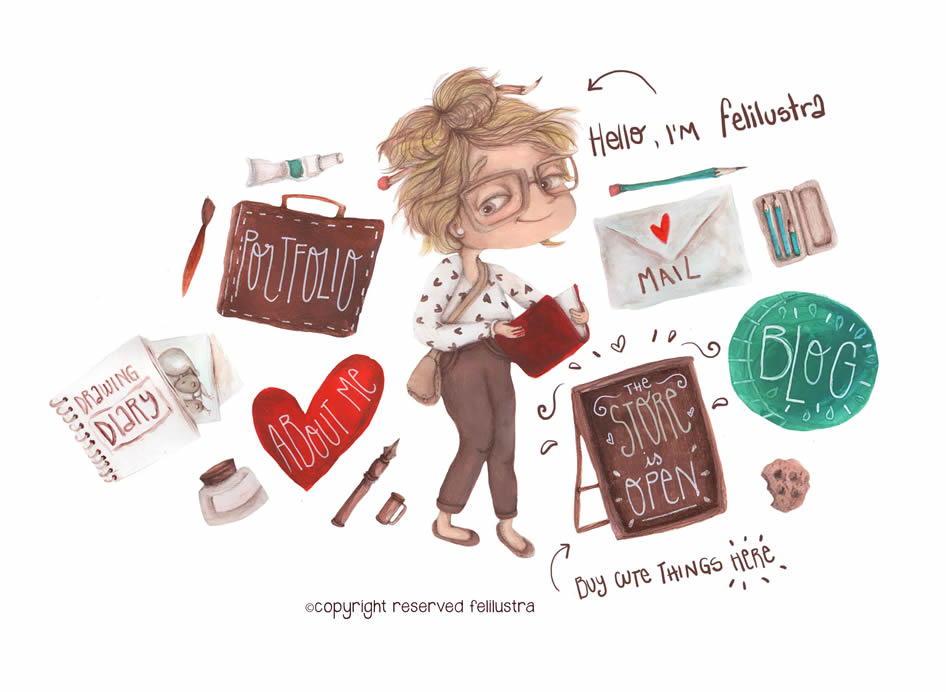 Hello, I'm felilustra
PORTFOLIO
MAIL
BLOG
DRAWING
DIARY
ABOUT ME
THE
STORE
is
OPEN
BUY CUTE THINGS HERE
©copyright reserved felilustra